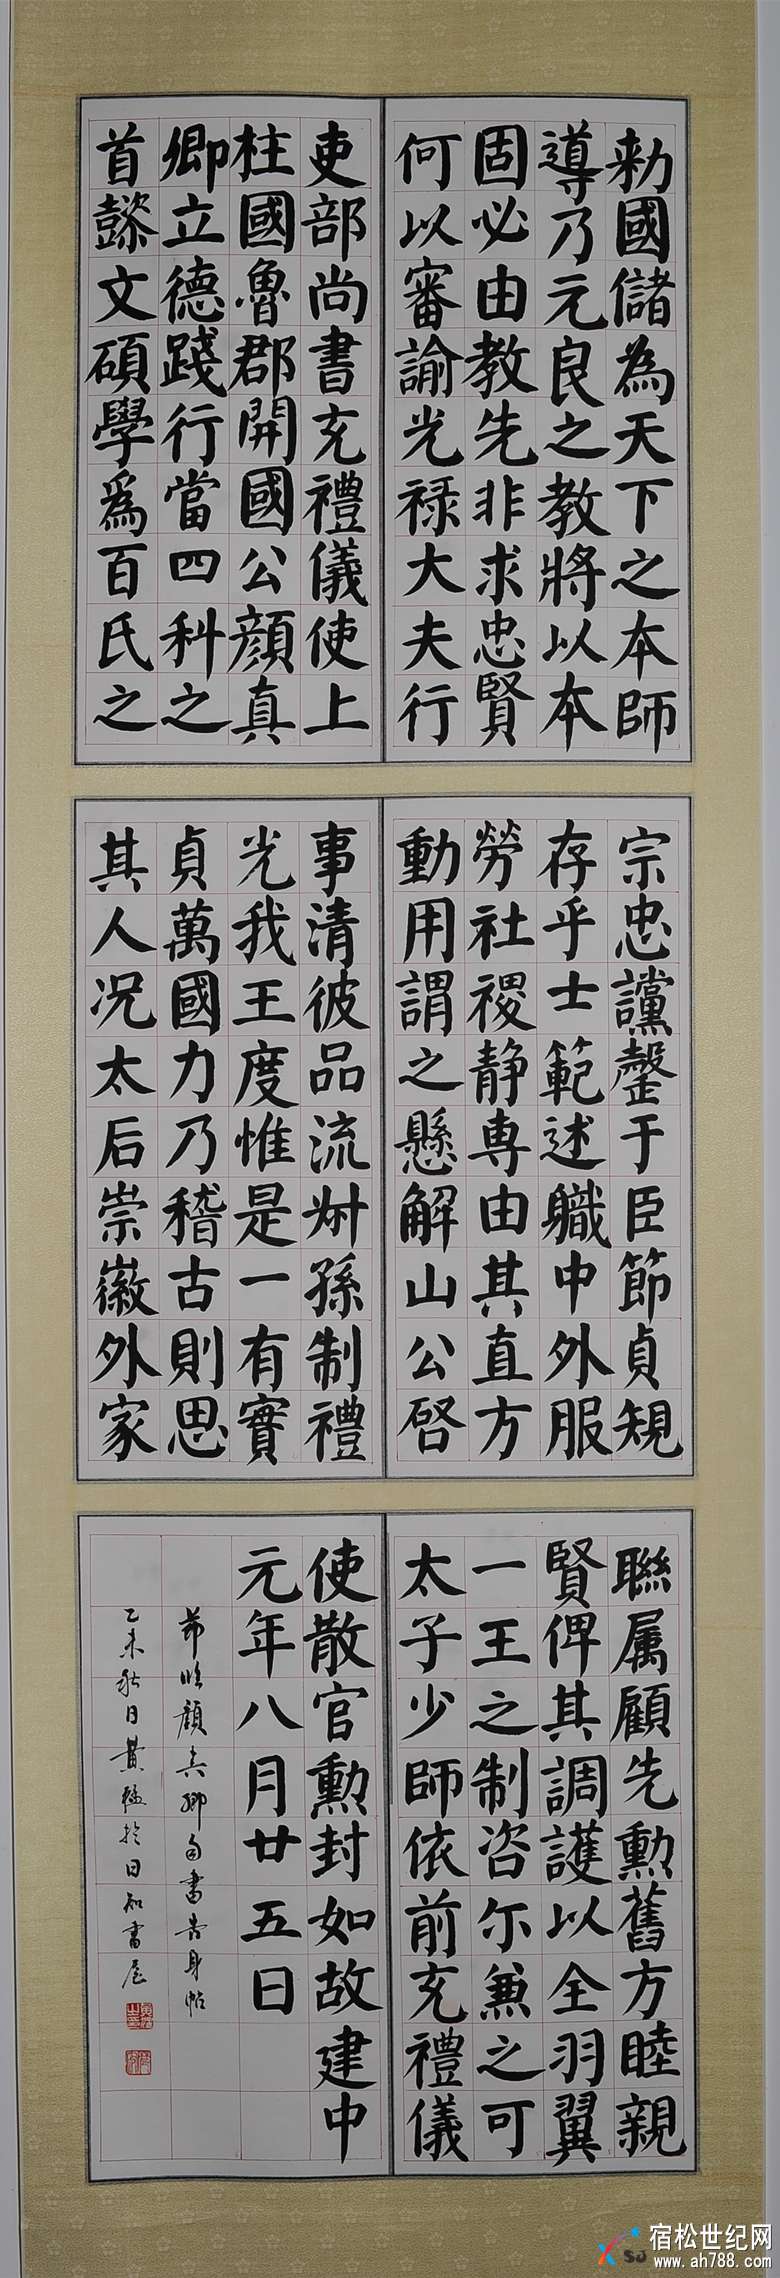 勑國儲為天下之本師
導乃元良之教將以本
固必由教先非求忠賢
何以審諭光禄大夫行
吏部尚書充禮儀使上
柱國魯郡開國公顏真
卿立德踐行當四科之
首懿文碩學爲百氏之
宗忠讜罄于臣節貞規
存乎士範述職中外服
勞社稷静専由其直方
動用謂之懸解山公啓
事清彼品流叔孫制禮
光我王度惟是一有實
貞萬國力乃稽古則思
其人况太后崇徽外家
聯属顧先勳舊方睦親
賢俾其調護以全羽翼
一王之制咨尔兼之可
太子少師依前充禮儀
使散官勳封如故建中
元年八月廿五日
節临顏真卿自書告身帖
乙未秋日黄 於日知書屋
宿松世纪网
www.ah788.com